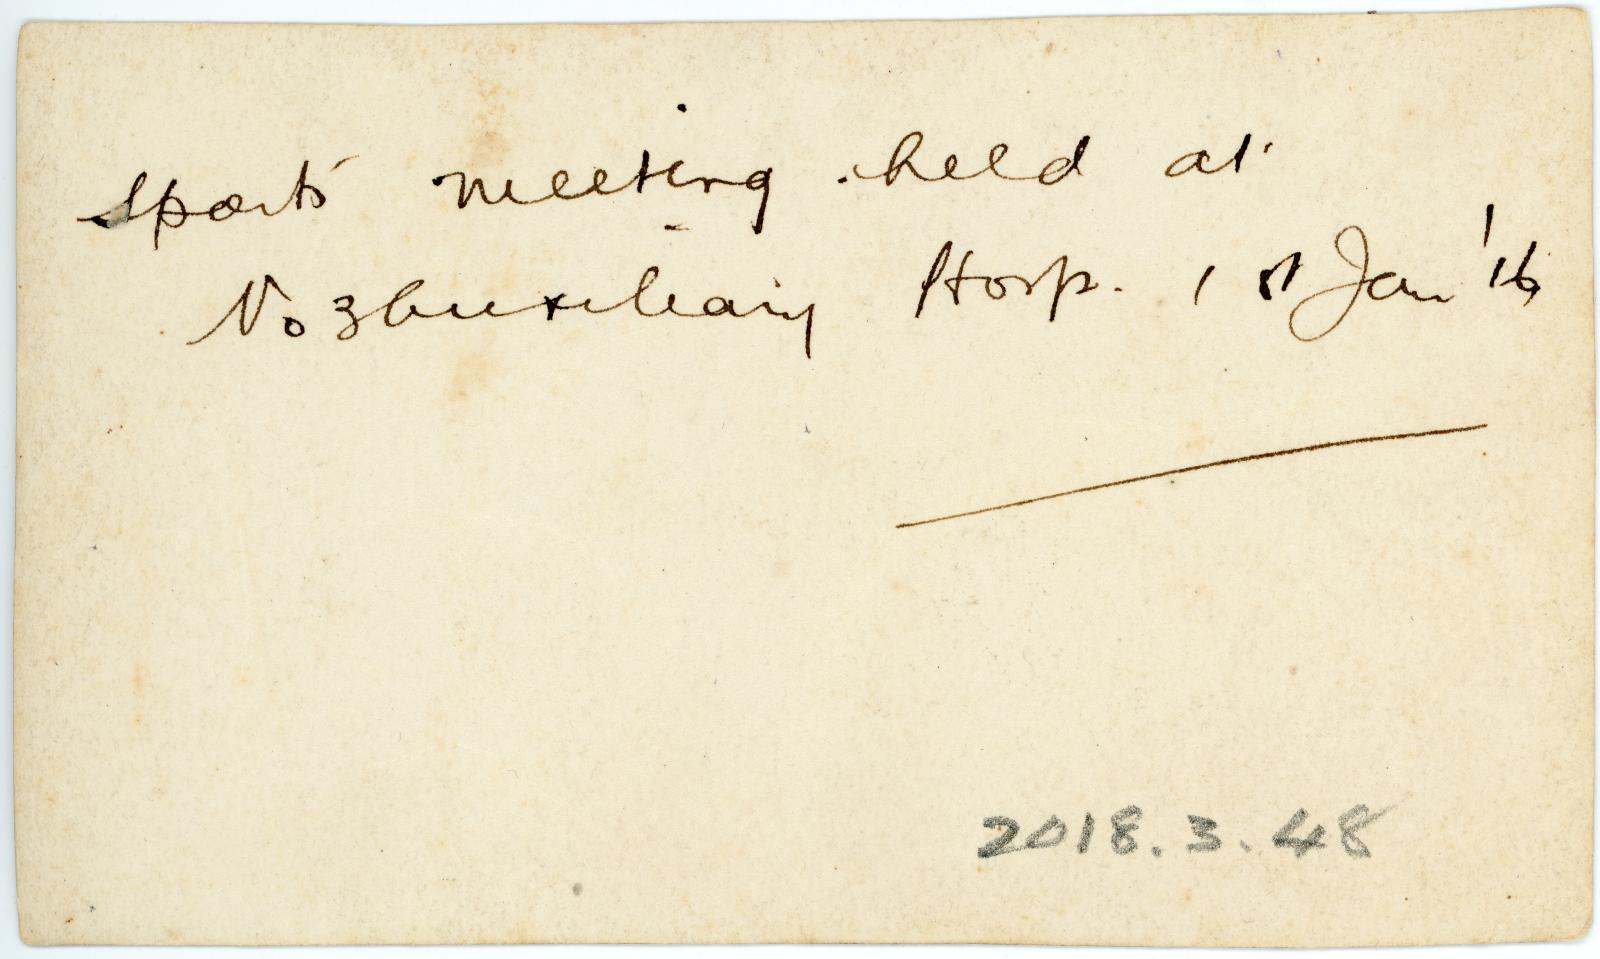 Sports meeting held at
No 3 Auxiliary Hosp. 1st Jan '16
2018.3.48